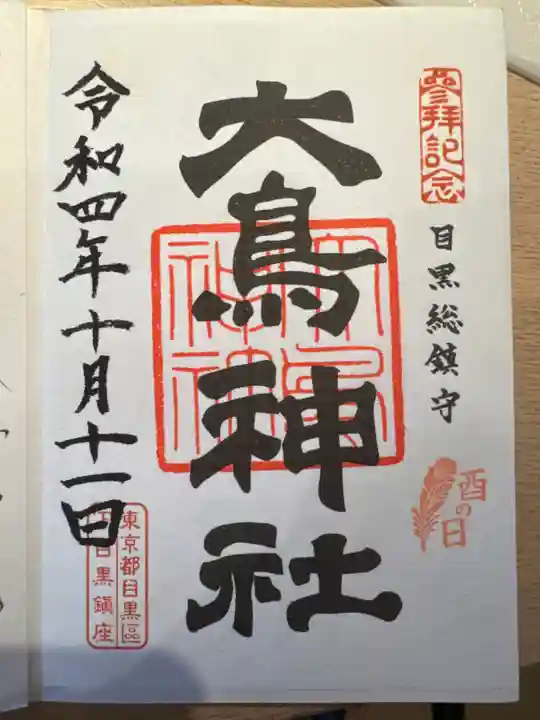 參拝記念
目黒総鎮守
酉の日
大鳥神社
大鳥神社
令和四年十月十一日
東京都目黒區
下目黒鎮座